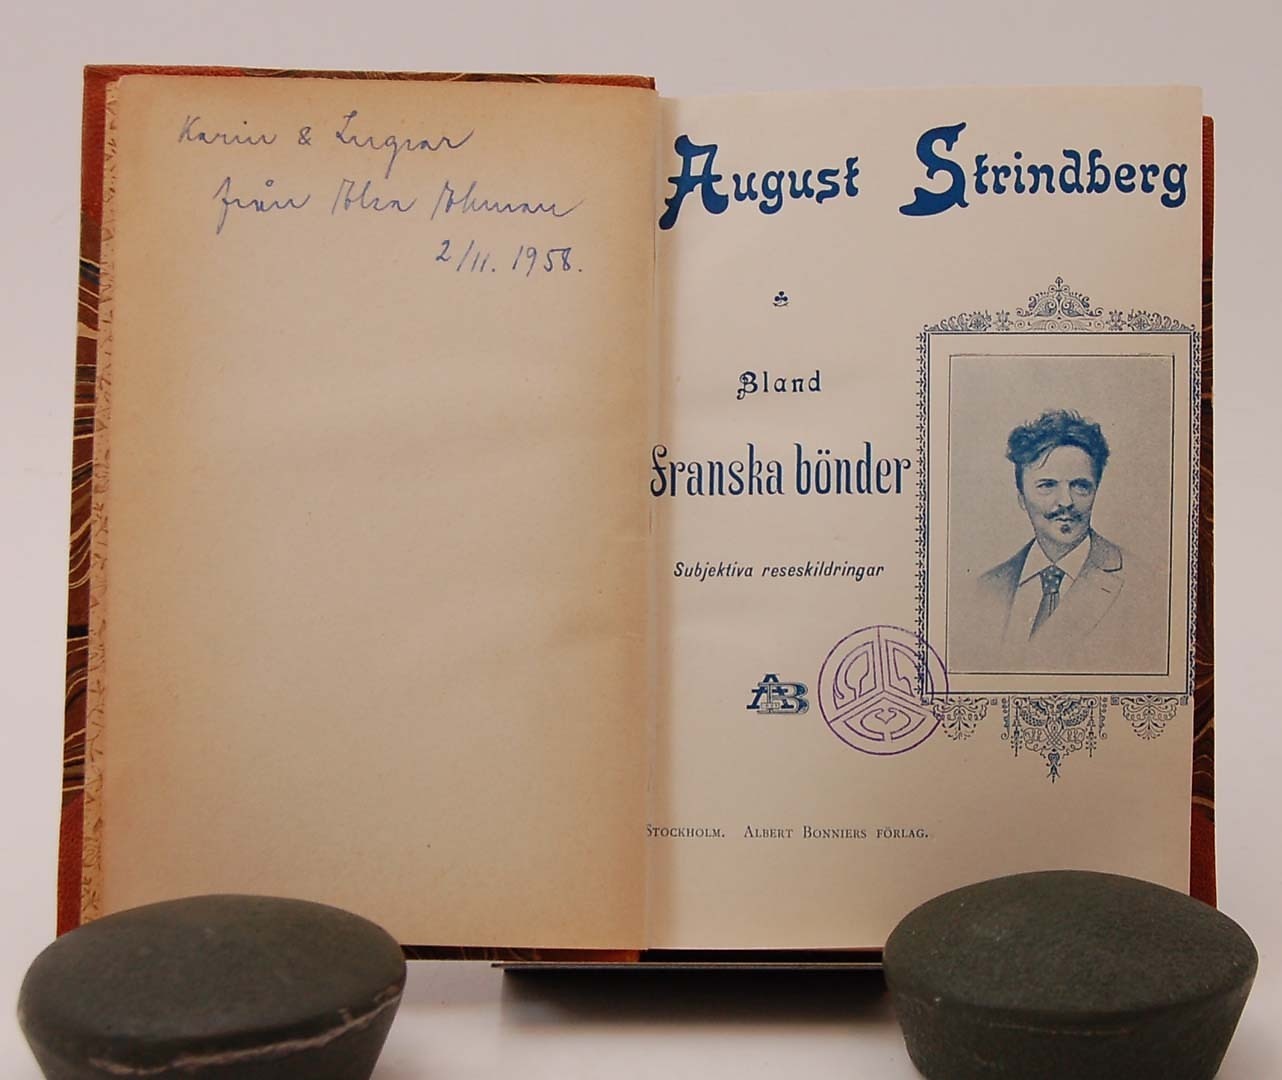 Karin & Ingvar
från Elsa Ekman
2/11. 1958.
August Strindberg
Bland
franska bönder
Subjektiva reseskildringar
AB
STOCKHOLM. ALBERT BONNIERS FÖRLAG.